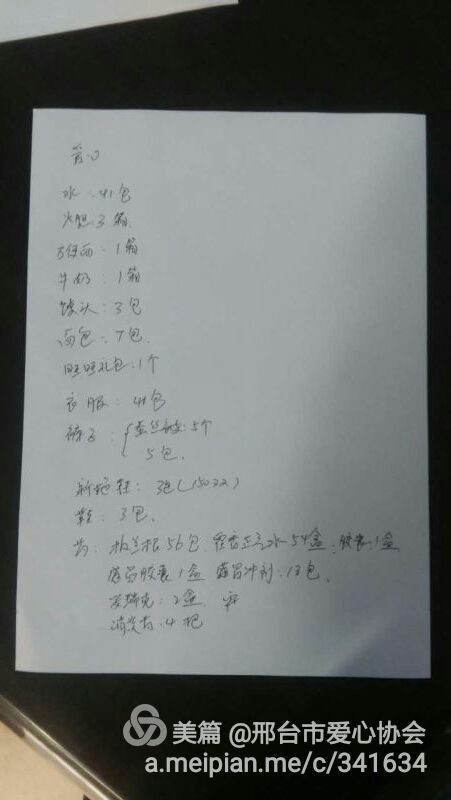 爱心
水:41包
火腿:3箱
方便面:1箱
牛奶:1箱
馒头:3包
面包:7包.
旺旺礼包:1个
衣服:41包
被子:{蚕丝被:5个
5包.
新拖鞋:3包(150双)
鞋:3包.
药:板兰根56包.藿香正气水54盒.胶囊:1盒
感冒胶囊1盒 感冒冲剂:13包.
2盒.
消炎药:4
美篇 @邢台市爱心协会
a.meipian.me/c/341634